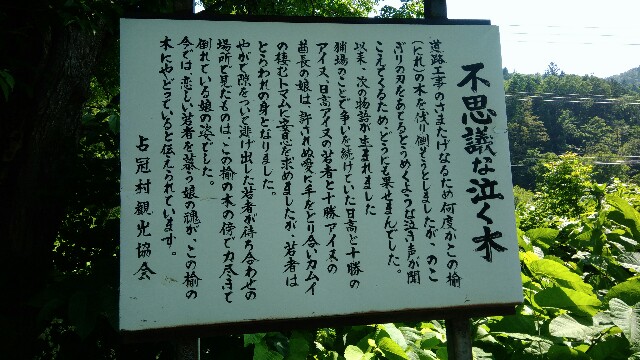 不思議な泣く木
道路工事のさまたげなるため何度かこの楡
(にれ)の木を伐り倒そうとしましたが、のこ
ぎりの刃をあてるとうめくような泣き声が聞
こえてくるため、どうにも果せませんでした。
以来、次の物語が生まれました
猟場のことで争いを続けていた日高と十勝の
アイヌ、日高アイヌの若者と十勝アイヌの
酋長の娘は、許されぬ愛に手をとり合いカムイ
の棲むトマムに安息を求めましたが、若者は
とらわれの身となりました。
やがて隙をついて逃げ出した若者が待ち合わせの
場所で見たものは、この楡の木の傍で力尽きて
倒れている娘の姿でした。
今では、恋しい若者を慕う娘の魂が、この楡の
木にやどっていると伝えられています。
占冠村観光協会